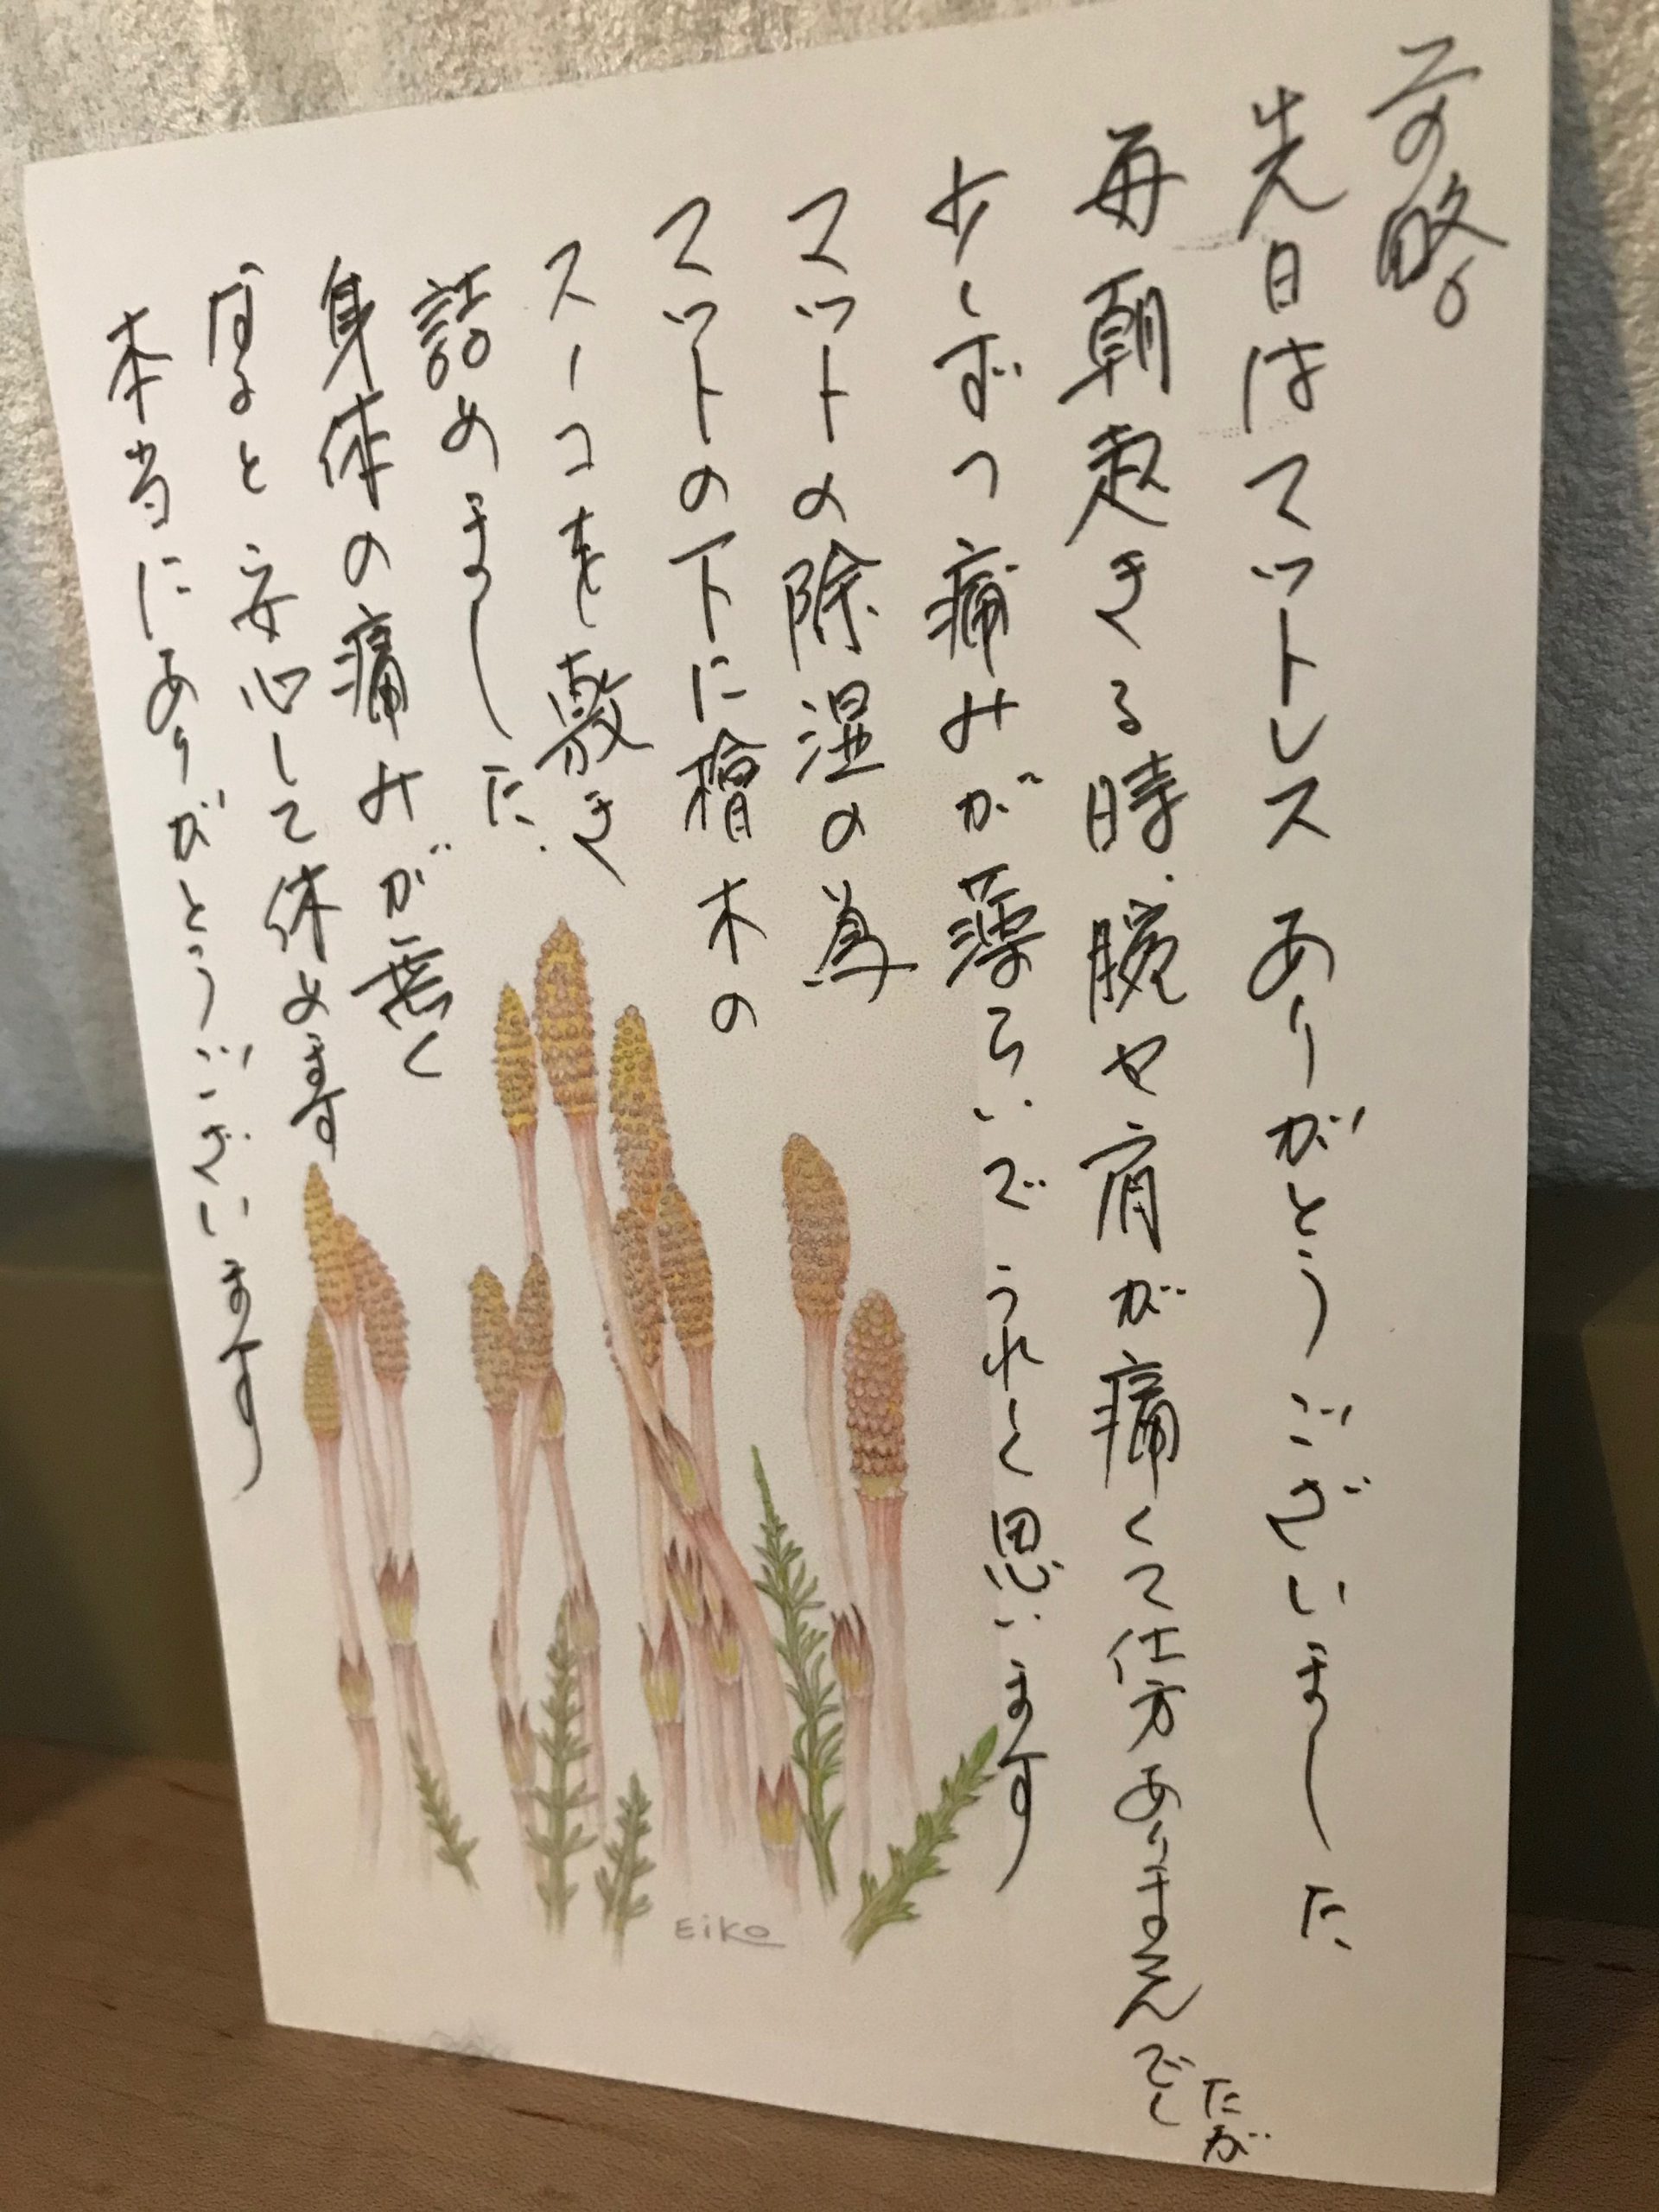 前略
先日はマットレスありがとうございました
毎朝起きる時、腕や肩が痛くて仕方ありませんでしたが
少しずつ痛みが薄らいでうれしく思います
マットの除湿の為
マットの下に檜木の
スノコを敷き
詰めました。
身体の痛みが無く
なると安心して休めます
本当にありがとうございます
Eiko